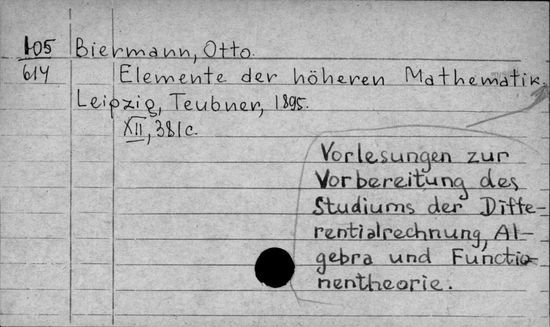 105 Biermann, Otto.
614 Elemente der höheren Mathematik.
Leipzig, Teubner, 1895.
XII, 381 c.
Vorlesungen zur
Vorbereitung des
Studiums der Diffe-
rentialrechnung, Al-
gebra und Functio-
nentheorie.